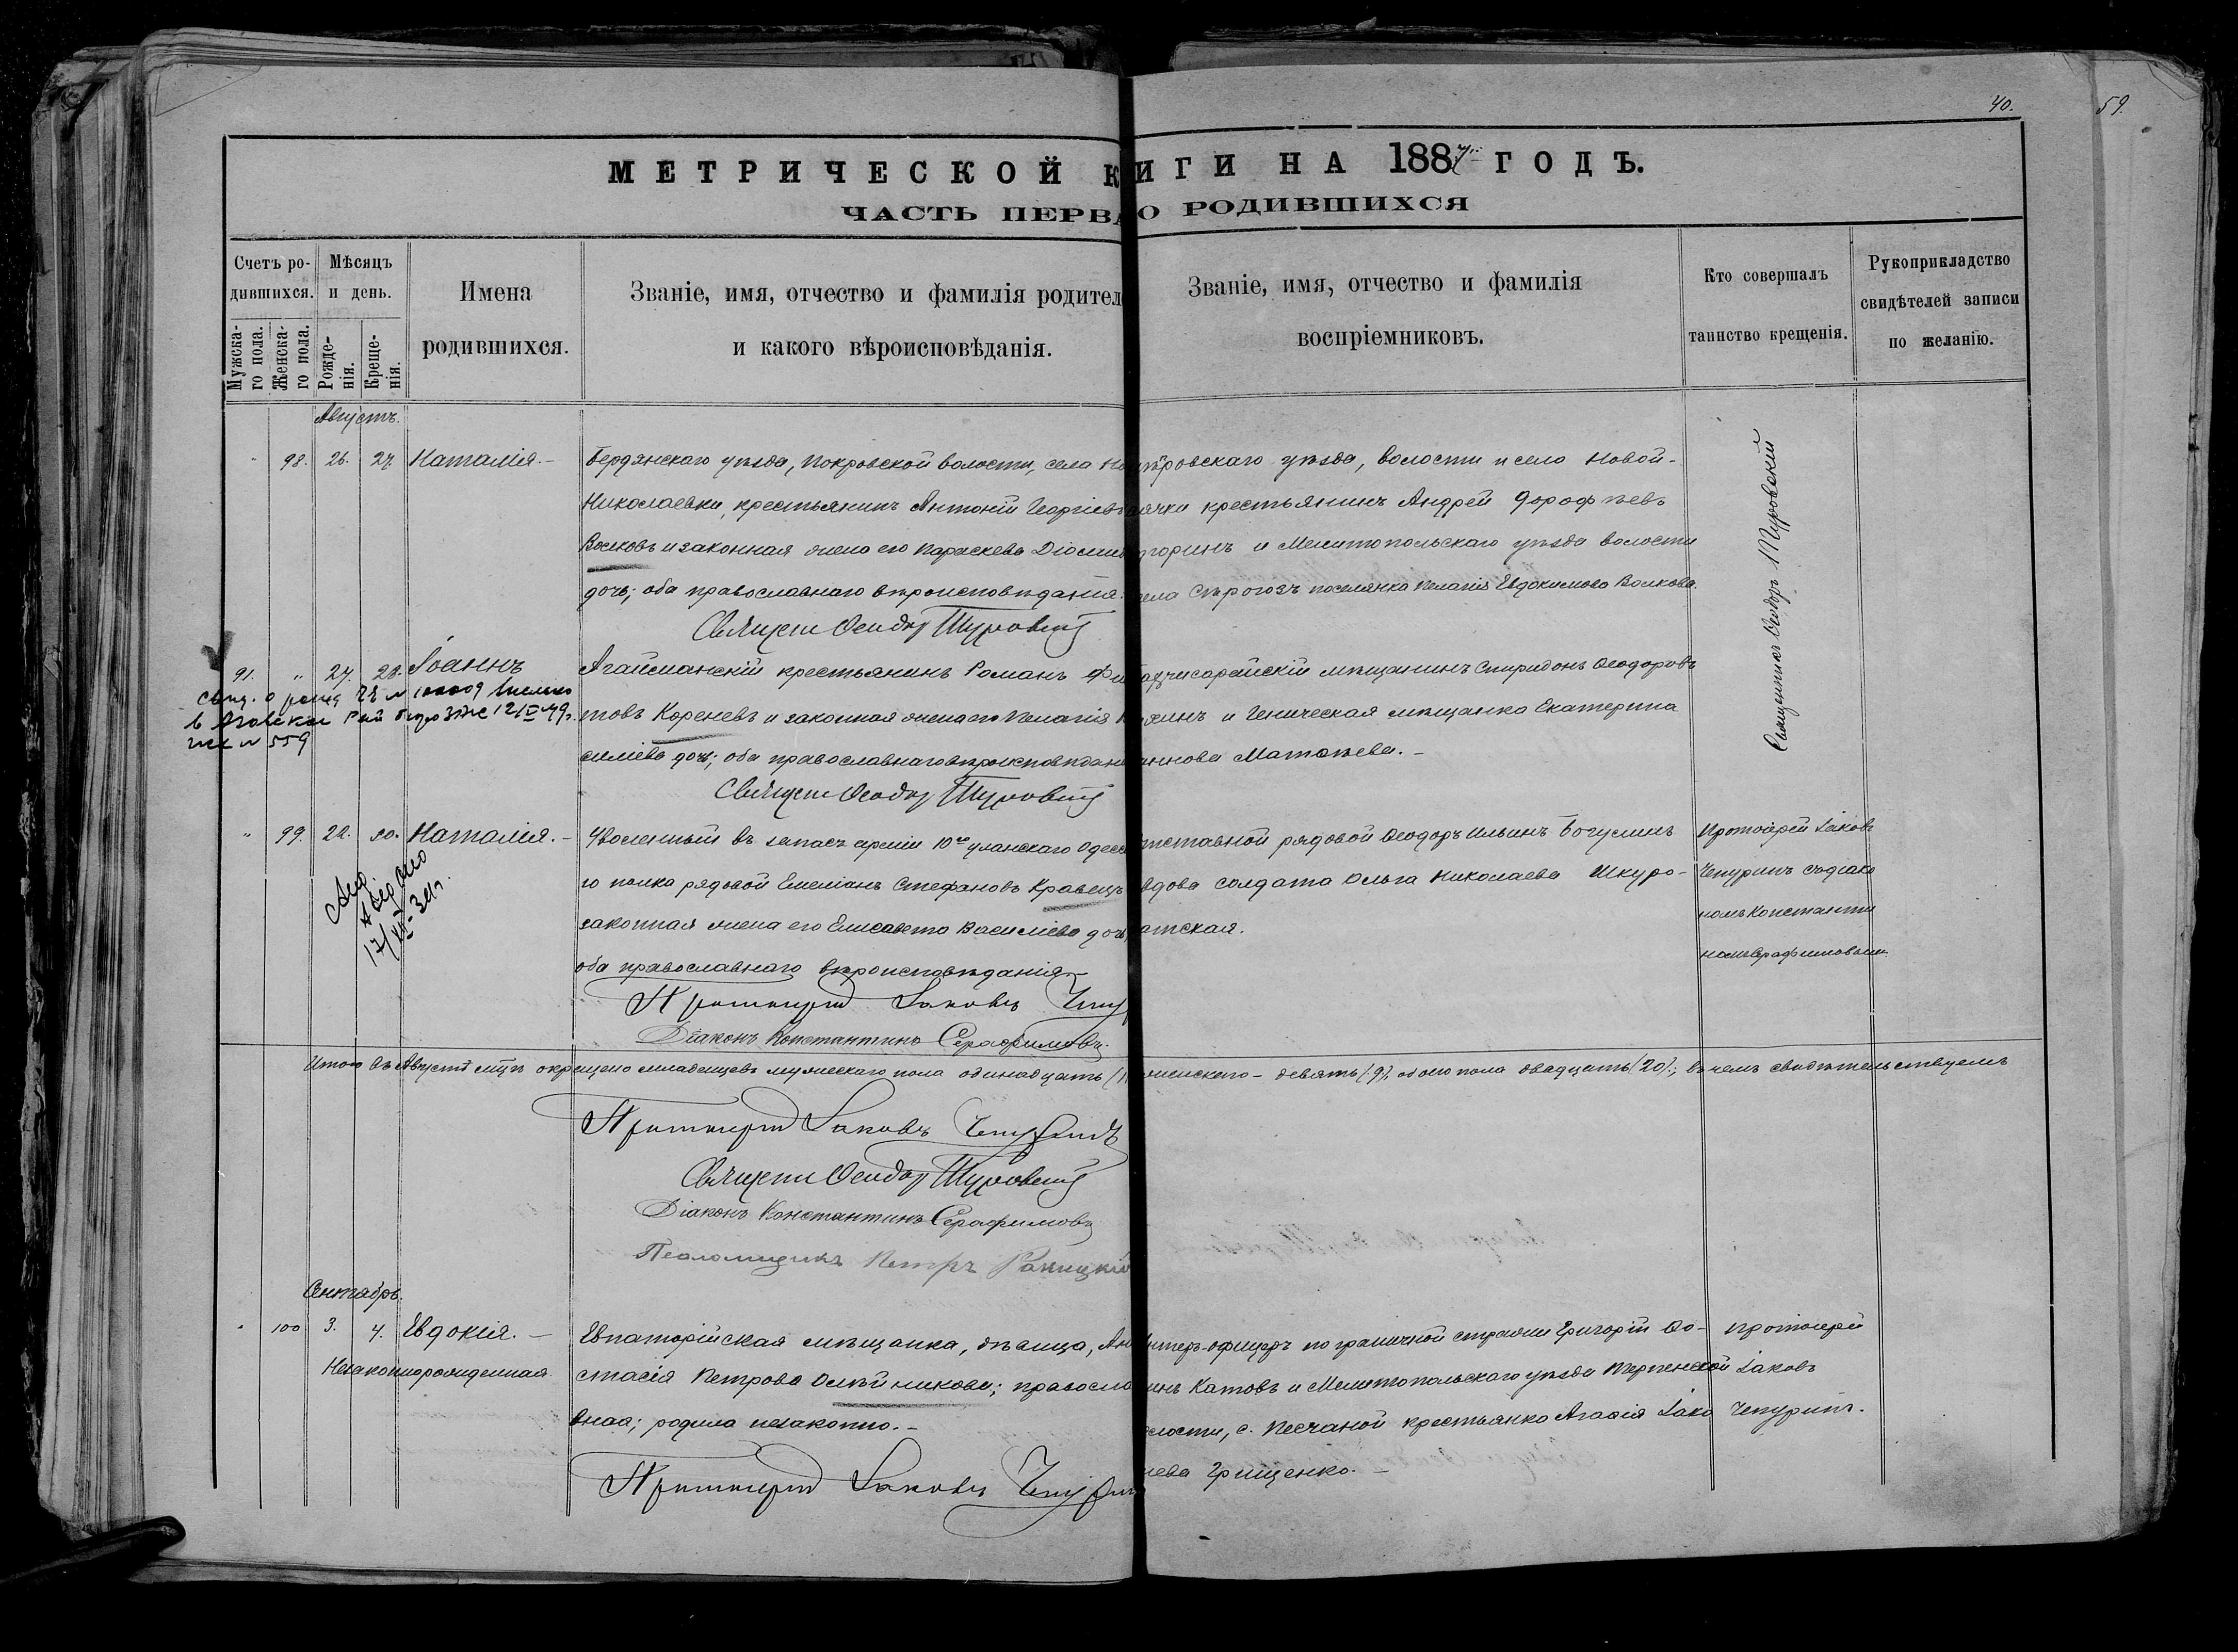 40.
59.
МЕТРИЧЕСКОЙ К ИГИ НА 1887 ГОДЪ.
ЧАСТЬ ПЕРВА О РОДИВШИХСЯ
Счетъ ро-
дившихся.
Мужска-
го пола.
Женска-
го пола.
Мѣсяцъ
и день.
Рожде-
нія.
Креще-
нія.
Имена
родившихся.
Званіе, имя, отчество и фамилія родител
и какого вѣроисповѣданія.
Званіе, имя, отчество и фамилія
воспріемниковъ.
Кто совершалъ
таинство крещенія.
Рукоприкладство
свидѣтелей записи
по желанію.
Августъ.
" 98. 26. 27. Наталія.
Бердянскаго уѣзда, Покровской волости, села Но
Николаевки, крестьянинъ Антоній Георгіевъ
Волковъ и законная жена его Параскева Діоми
дочь; оба православнаго вѣроисповѣданія.
Священ Ѳеодор Туровскій
ровскаго уѣзда, волости и село Новой-
ячки крестьянинъ Андрей Дорофѣевъ
горинъ и Мелитопольскаго уѣзда волости
ела Сѣрогозъ поселянка Пелагія Евдокимова Волкова.
Священникъ Ѳеодоръ Туровскій
91. " 27. 28. Іоаннъ
Свид. о рожд
в Азовское
559
Агайманскій крестьянинъ Романъ Фи
товъ Кореневъ и законная жена его Пелагія
силіева дочь; оба православнаго вѣроисповѣдан
Священ Ѳеодор Туровскій
чисарайскій мѣщанинъ Спиридонъ Ѳеодоровъ
инъ и Геническая мѣщанка Екатерина
аннова Матвѣева.
" 99. 29. 30. Наталія.
Уволенный въ запасъ арміи 10го уланскаго Одесс
го полка рядовой Емеліанъ Стефановъ Кравецъ
законная жена его Елисавета Василіева дочь,
оба православнаго вѣроисповѣданія
Протоіерей Іаковъ Чепу
Діаконъ Константинъ Серафимовъ.
тставной рядовой Ѳеодоръ Ильинъ Богуслинъ
вдова солдата Ольга Николаева Шкуро-
атская.
Протоіерей Іаковъ
Чепуринъ съ діако
номъ Константи
номъ Серафимовымъ.
Итого въ Августѣ мцѣ окрещено младенцевъ мужескаго пола одинадцать (1
женскаго - девять (9), обоего пола двадцать (20).; въ чемъ свидѣтельствуемъ
Протоіерей Іаковъ Чепуринъ
Священ Ѳеодор Туровскій
Діаконъ Константинъ Серафимовъ
Псаломщикъ Петръ Ракицкій
Сентябрь.
" 100 3. 4. Евдокія.
Незаконнорожденная
Евпаторійская мѣщанка, дѣвица, Ан
стасія Петрова Олѣйникова; правосла
вная; родила незаконно.
Протоіерей Іаковъ Чепурин
нтеръ-офицеръ пограничной стражи Григорій Ѳо-
инъ Катовъ и Мелитопольскаго уѣзда Терпеніевской
лости, с. Песчаной крестьянка Агаѳія Іако
лева Грищенко.
Протоіерей
Іаковъ
Чепуринъ.